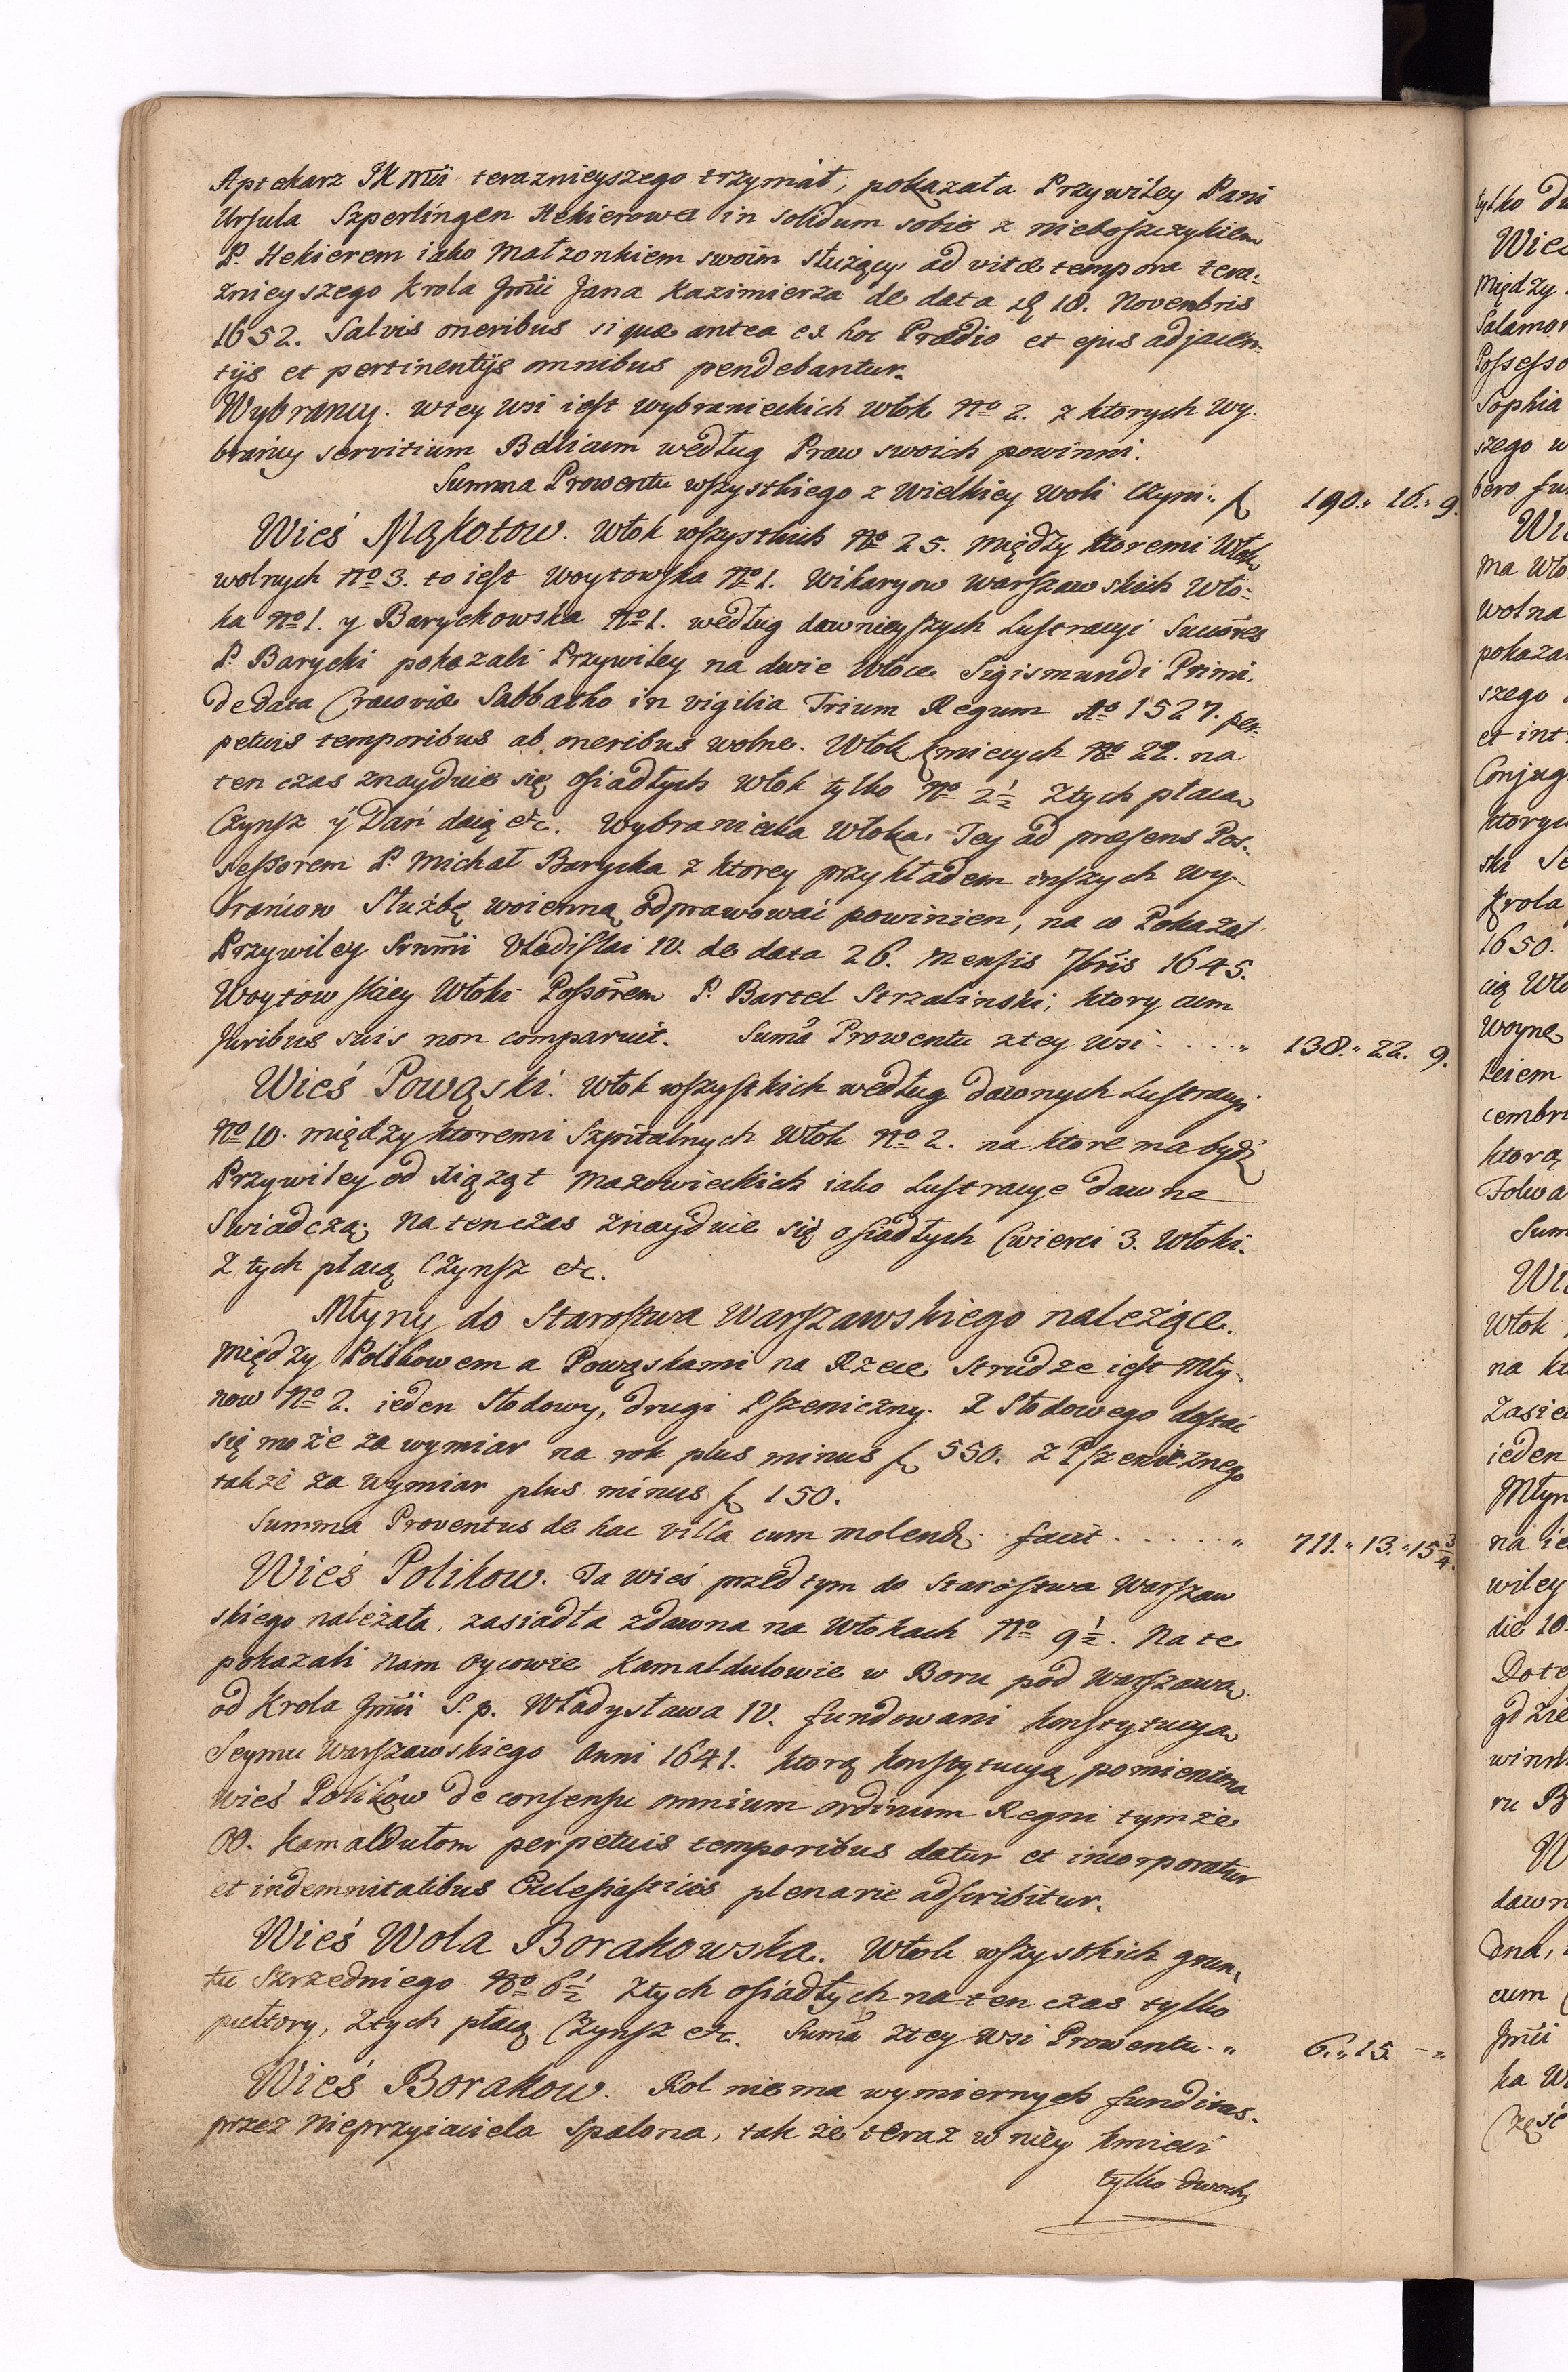 Aptekarz JKMći teraznieyszego trzymał, pokazała Przywiley Pani
Ursula Szperlingen Hekierowa in solidum sobie z nieboszczykiem
P. Hekierem iako Małzonkiem swoim służący ad vitæ tempora tera-
znieyszego Krola Jmći Jana Kazimierza de data 18. Novembris
1652. Salvis oneribus si quæ antea ex hoc Prædio et ejus adjacen-
tijs et pertinentijs omnibus pendebantur.
Wybrancy. w tey wsi iest wybranieckich włok No 2. z ktorych Wy-
brańcy servitium Bellicum według Praw swoich powinni.
Summa Prowentu wszystkiego z Wielkiey Woli Czyni " f 190." 16." 9.
Wieś Mąkotow. Włok wszystkich No 25. między ktoremi Włok
wolnych No 3. to iest Woytowska No 1. Wikaryow Warszawskich Wło-
ka No 1. y Baryckowska No 1. według dawnieyszych Lustracyi Succores
P. Barycki pokazali Przywiley na dwie Włoce Sigismundi Primi.
de data Cracoviæ Sabbatho in vigilia Trium Regum Ao 1527. per-
petuis temporibus ab oneribus wolne. Włok kmiecych No 22. na
ten czas znayduie się osiadłych włok tylko No 2 1/2 z tych płacą
Czynsz y Dań daią etc. Wybraniecka Włoka. Jey ad præsens Pos-
sessorem P. Michał Barycka z ktorey przykładem inszych Wy-
brańcow Służbę woienną odprawować powinien, na co Pokazał
Przywiley Srnmi Vladislai IV. de data 26. Mensis 7bris 1645.
Woytowskiey Włoki Possorem P. Bartel Strzalinski, ktory cum
Juribus suis non comparuit. Suma Prowentu z tey wsi . . . . " 138." 22. 9.
Wieś Powąski. Włok wszystkich według dawnych Lustracyi
No 10. między ktoremi Szpitalnych Włok No 2. na ktore ma bydź
Przywiley od Xiążąt Mazowieckich iako Lustracye dawne
Swiadczą; Na ten czas znayduie się osiadłych Cwierci 3. Włoki.
Z tych płacą Czynsz etc.
Młyny do Starostwa Warszawskiego należące.
Między Polikowem a Powąskami na Rzece Strudze iest Mły-
now No 2. ieden Słodowy, drugi Pszeniczny. Z Słodowego dostać
się może za wymiar na rok plus minus f 550. z Pszenicznego
także za wymiar plus minus f 150.
Summa Proventus de hac villa cum molend. facit . . . . . " 711." 13." 15 3/4.
Wieś Polikow. Ta wieś przed tym do Starostwa Warszaw
skiego należała, zasiadła zdawna na Włokach No 9 1/2. Na te
pokazali nam Oycowie Kamaldulowie w Boru pod Warszawą
od Krola Jmći S. p. Władysława IV. fundowani konstytucyą
Seymu Warszawskiego Anni 1641. ktorą konstytucyą pomieniona
wieś Polikow de consensu omnium ordinum Regni tymże
OO. Kamaldułom perpetuis temporibus datur et incorporatur
et indemnitatibus Ecclesiasticis plenarie adscribitur.
Wieś Wola Borakowska. Włok wszystkich grun-
tu szrzedniego No 6 1/2 z tych osiadłych na ten czas tylko
pułtory, z tych płacą Czynsz etc. Suma z tey Wsi Prowentu. " 6." 15 - "
Wieś Borakow. Rol niema wymiernych funditus.
przez Nieprzyiaciela spalona, tak że teraz w niey kmieci
tylko dwoch